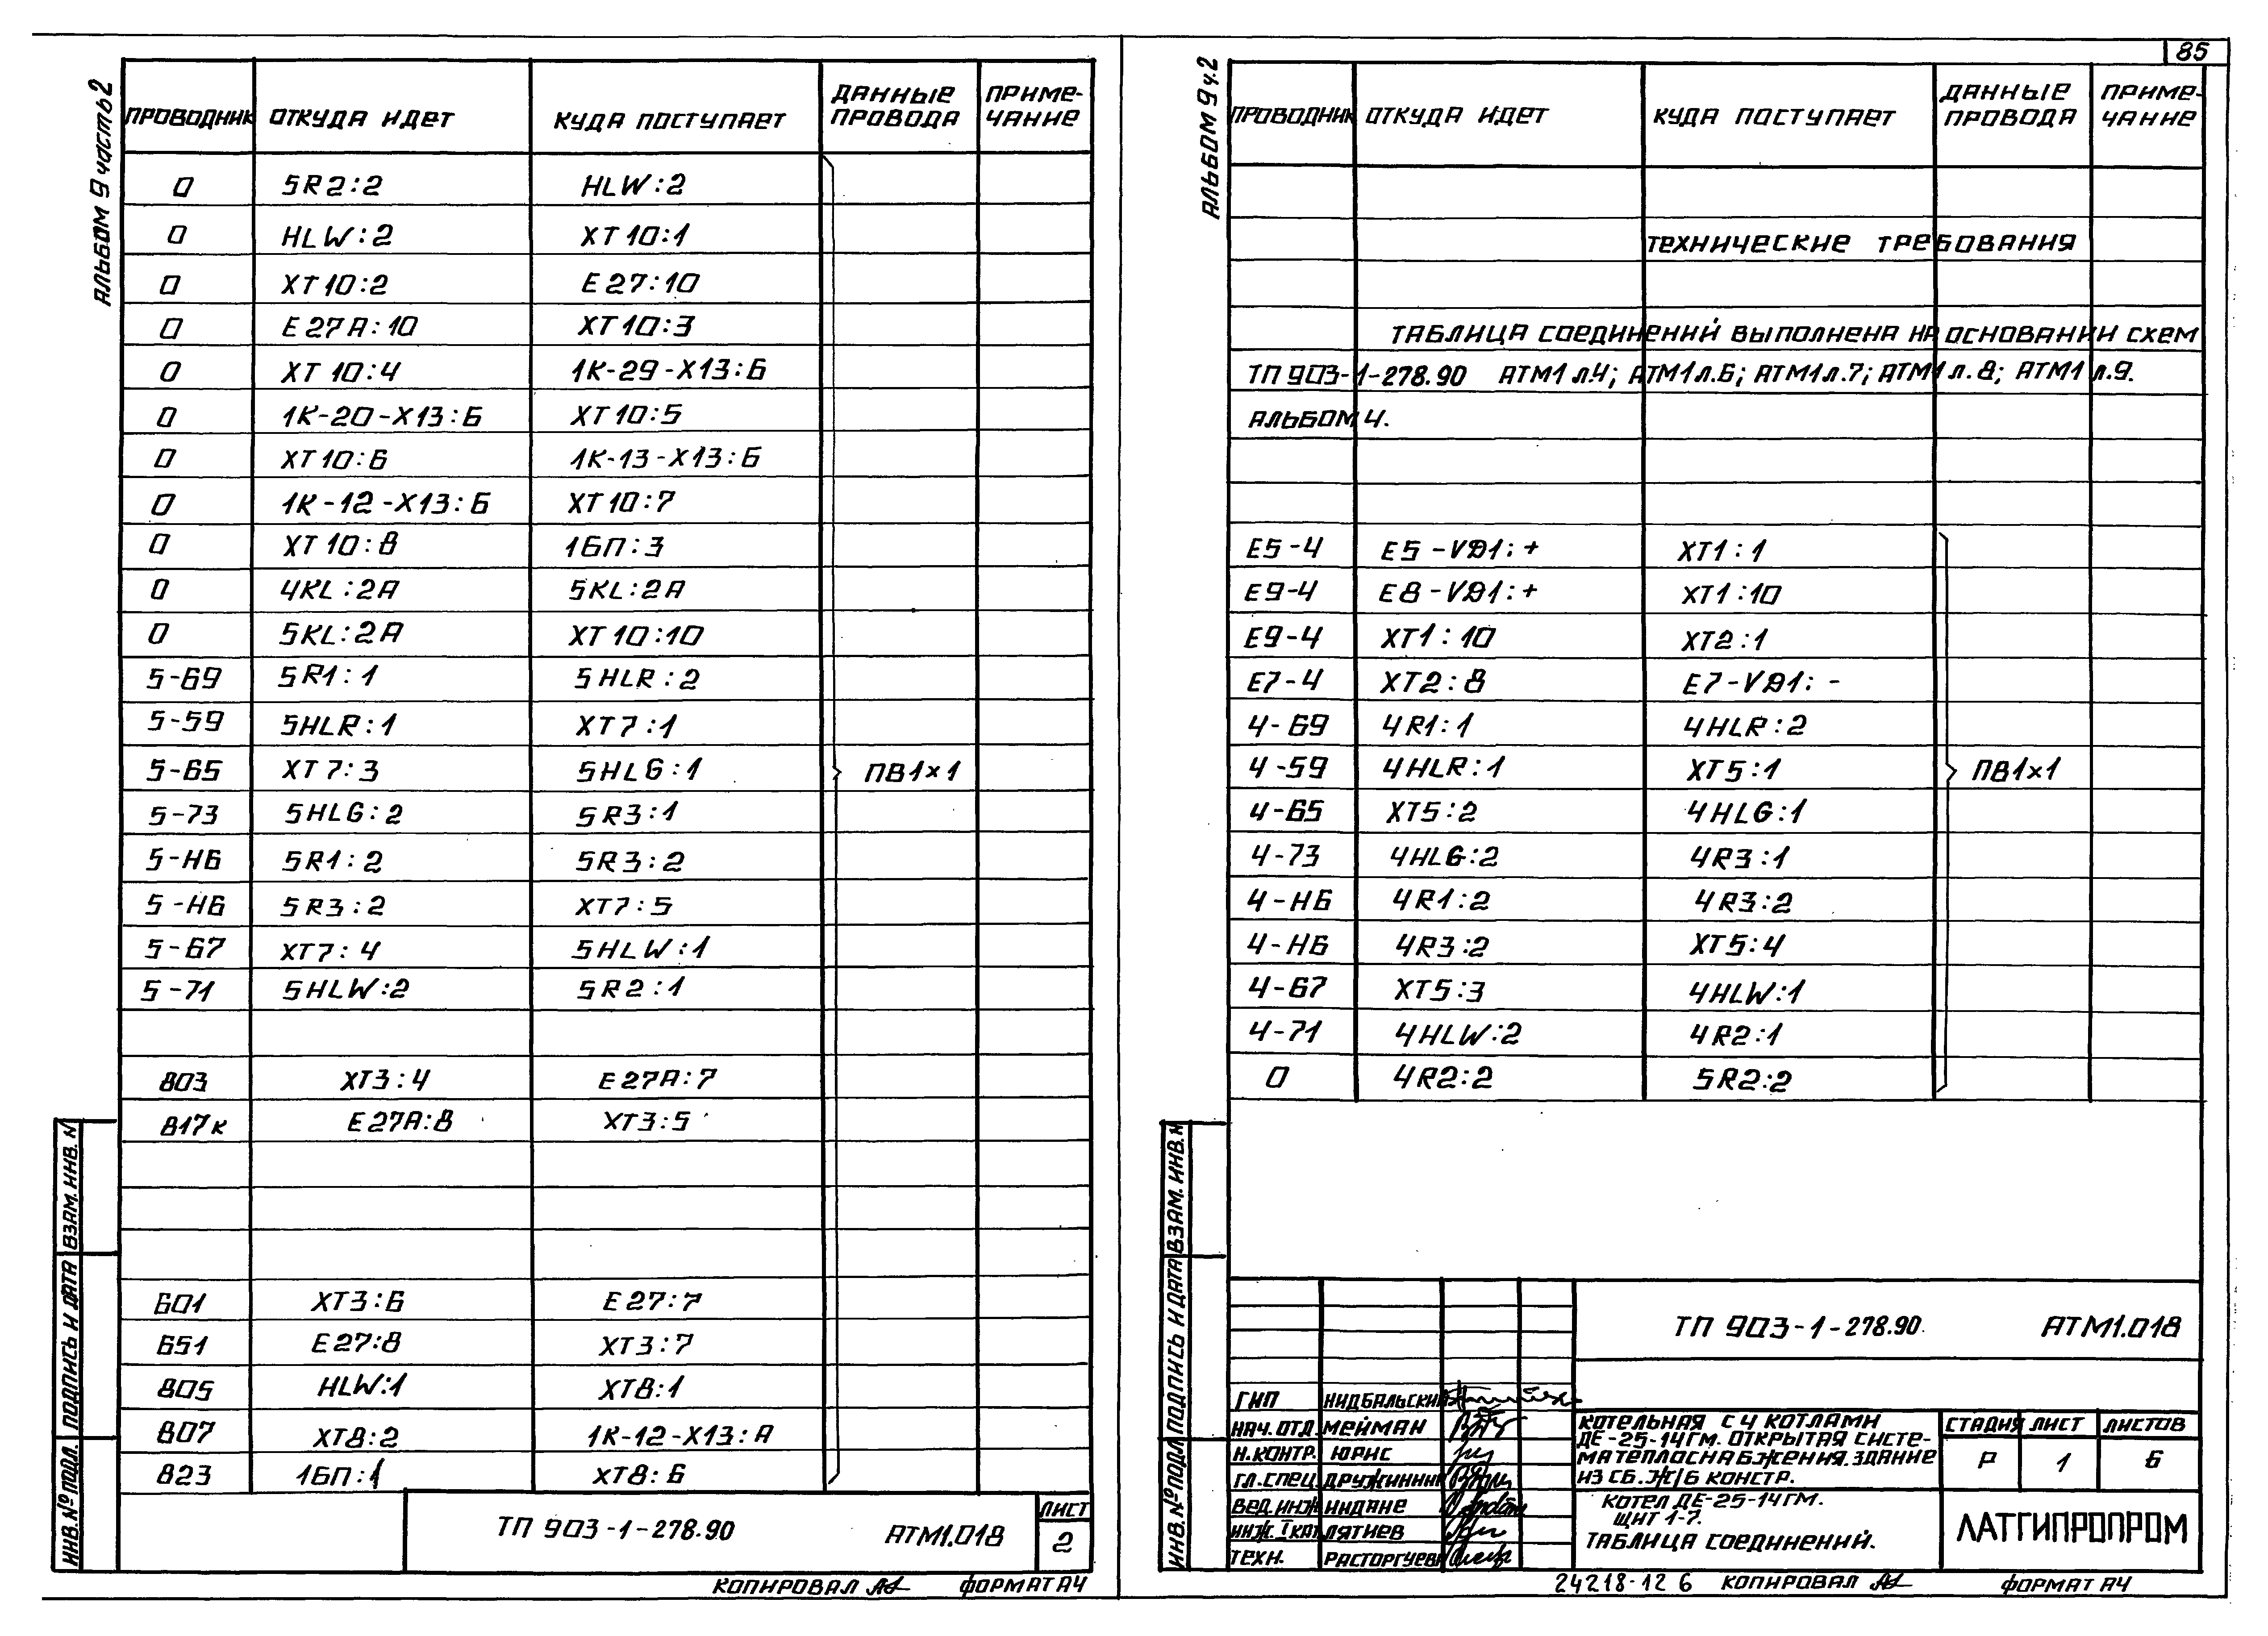 85
АЛЬБОМ 9 ЧАСТЬ 2
ПРОВОДНИК ОТКУДА ИДЕТ КУДА ПОСТУПАЕТ ДАННЫЕ ПРОВОДА ПРИМЕ-ЧАНИЕ
0 5R2:2 HLW:2
0 HLW:2 XT10:1
0 XT10:2 E27:10
0 E27A:10 XT10:3
0 XT10:4 1К-29-Х13:Б
0 1К-20-Х13:Б XT10:5
0 XT10:6 1К-13-Х13:Б
0 1К-12-Х13:Б XT10:7
0 XT10:8 1БП:3
0 4KL:2A 5KL:2A
0 5KL:2A XT10:10
5-69 5R1:1 5HLR:2
5-59 5HLR:1 XT7:1
5-65 XT7:3 5HLG:1 ПВ1×1
5-73 5HLG:2 5R3:1
5-Н6 5R1:2 5R3:2
5-Н6 5R3:2 XT7:5
5-67 XT7:4 5HLW:1
5-71 5HLW:2 5R2:1
803 XT3:4 E27A:7
817к E27A:8 XT3:5
601 XT3:6 E27:7
651 E27:8 XT3:7
805 HLW:1 XT8:1
807 XT8:2 1К-12-Х13:А
823 1БП:1 XT8:6
ТП 903-1-278.90 АТМ1.018
ЛИСТ
2
ИНВ.№ ПОДЛ. ПОДПИСЬ И ДАТА ВЗАМ. ИНВ. №
КОПИРОВАЛ ФОРМАТ А4
АЛЬБОМ 9 ч.2
ПРОВОДНИК ОТКУДА ИДЕТ КУДА ПОСТУПАЕТ ДАННЫЕ ПРОВОДА ПРИМЕ-ЧАНИЕ
ТЕХНИЧЕСКИЕ ТРЕБОВАНИЯ
ТАБЛИЦА СОЕДИНЕНИЙ ВЫПОЛНЕНА НА ОСНОВАНИИ СХЕМ
ТП 903-1-278.90 АТМ1 л.4; АТМ1 л.6; АТМ1 л.7; АТМ1 л.8; АТМ1 л.9.
АЛЬБОМ 4.
E5-4 E5-VD1:+ XT1:1
E9-4 E8-VD1:+ XT1:10
E9-4 XT1:10 XT2:1
E7-4 XT2:8 E7-VD1:-
4-69 4R1:1 4HLR:2
4-59 4HLR:1 XT5:1 ПВ1×1
4-65 XT5:2 4HLG:1
4-73 4HLG:2 4R3:1
4-Н6 4R1:2 4R3:2
4-Н6 4R3:2 XT5:4
4-67 XT5:3 4HLW:1
4-71 4HLW:2 4R2:1
0 4R2:2 5R2:2
ИНВ.№ ПОДЛ. ПОДПИСЬ И ДАТА ВЗАМ. ИНВ. №
ТП 903-1-278.90. АТМ1.018
ГИП НИДБАЛЬСКИЙ
НАЧ.ОТД. МЕЙМАН
Н.КОНТР. ЮРИС
ГЛ.СПЕЦ. ДРУЖИНИН
ВЕД.ИНЖ. ИНДАНЕ
ИНЖ. I КАТ. ЛЯТИЕВ
ТЕХН. РАСТОРГУЕВА
КОТЕЛЬНАЯ С 4 КОТЛАМИ
ДЕ-25-14ГМ. ОТКРЫТАЯ СИСТЕ-
МА ТЕПЛОСНАБЖЕНИЯ. ЗДАНИЕ
ИЗ СБ. Ж/Б КОНСТР.
СТАДИЯ ЛИСТ ЛИСТОВ
Р 1 6
КОТЕЛ ДЕ-25-14ГМ.
ЩИТ 1-7.
ТАБЛИЦА СОЕДИНЕНИЙ.
ЛАТГИПРОПРОМ
24218-12 6 КОПИРОВАЛ ФОРМАТ А4